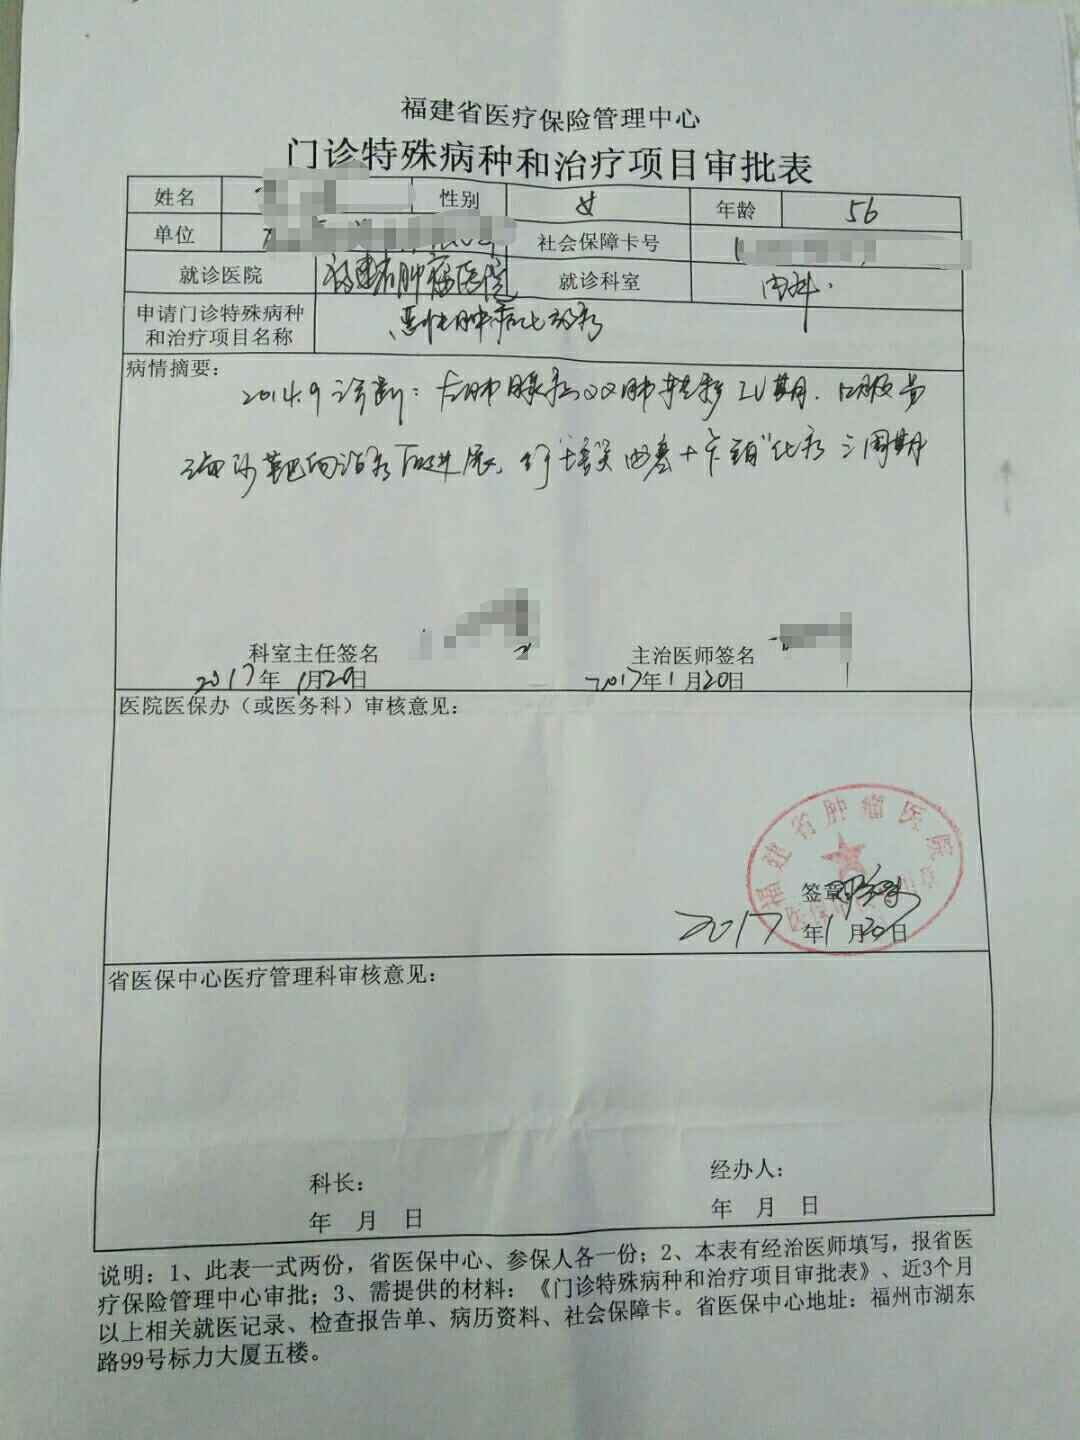 福建省医疗保险管理中心
门诊特殊病种和治疗项目审批表
姓名 性别 女 年龄 56
单位 社会保障卡号
就诊医院 福建省肿瘤医院 就诊科室 内科.
申请门诊特殊病种和治疗项目名称 恶性肿瘤化放疗
病情摘要：
2014.9诊断：左肺腺癌双肺转移IV期. 口服易
瑞沙靶向治疗后进展. 行"培美曲塞+卡铂"化疗三周期
科室主任签名 主治医师签名
2017年1月20日 2017年1月20日
医院医保办（或医务科）审核意见：
福建省肿瘤医院
签章
2017年1月20日
省医保中心医疗管理科审核意见：
科长： 经办人：
年 月 日 年 月 日
说明：1、此表一式两份，省医保中心、参保人各一份；2、本表有经治医师填写，报省医
疗保险管理中心审批；3、需提供的材料：《门诊特殊病种和治疗项目审批表》、近3个月
以上相关就医记录、检查报告单、病历资料、社会保障卡。省医保中心地址：福州市湖东
路99号标力大厦五楼。